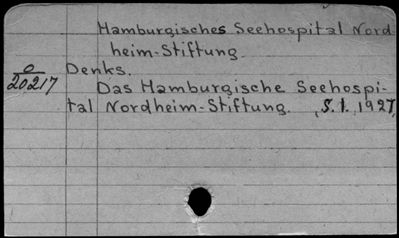 Hamburgisches Seehospital Nord
heim-Stiftung.
O
20217
Denks.
Das Hamburgische Seehospi-
tal Nordheim-Stiftung. , S. l., 1927,